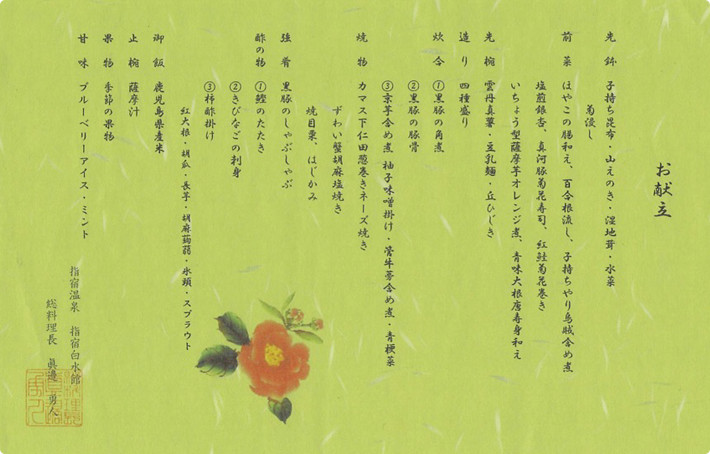 お献立
先鉢 子持ち昆布・山えのき・湿地茸・水菜
菊浸し
前菜 ほやこの腸和え、百合根流し、子持ちやり烏賊含め煮
塩煎銀杏、真河豚菊花寿司、紅鮭菊花巻き
いちょう型薩摩芋オレンジ煮、青味大根唐寿身和え
先椀 雲丹真薯・豆乳麺・丘ひじき
造り 四種盛り
炊合 ①黒豚の角煮
②黒豚の豚骨
③京芋含め煮 柚子味噌掛け・管牛蒡含め煮・青梗菜
焼物 カマス下仁田葱巻きネーズ焼き
ずわい蟹胡麻塩焼き
焼目栗、はじかみ
強肴 黒豚のしゃぶしゃぶ
酢の物 ①鰹のたたき
②きびなごの刺身
③柿酢掛け
紅大根・胡瓜・長芋・胡麻蒟蒻・氷頭・スプラウト
御飯 鹿児島県産米
止椀 薩摩汁
果物 季節の果物
甘味 ブルーベリーアイス・ミント
指宿温泉 指宿白水館
総料理長 眞邉 勇人